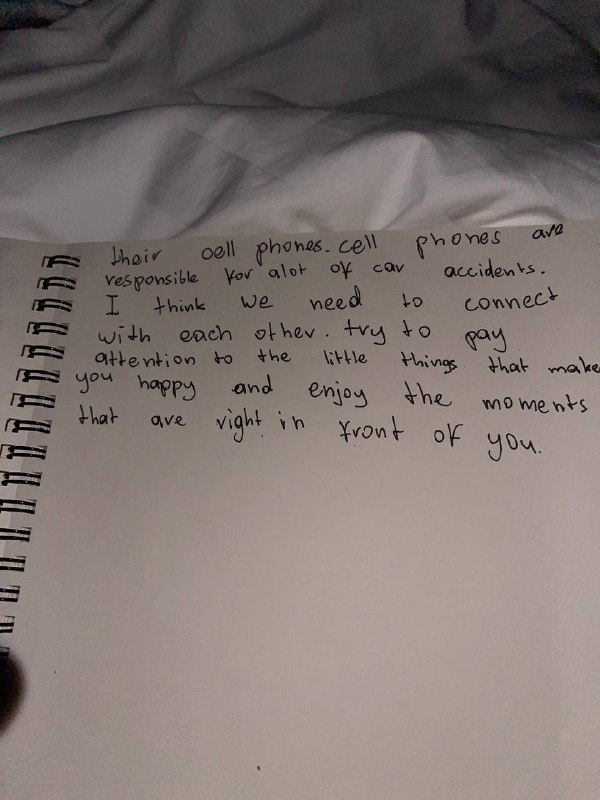 their cell phones. cell phones are
responsible for alot of car accidents.
I think we need to connect
with each other. try to pay
attention to the little things that make
you happy and enjoy the moments
that are right in front of you.